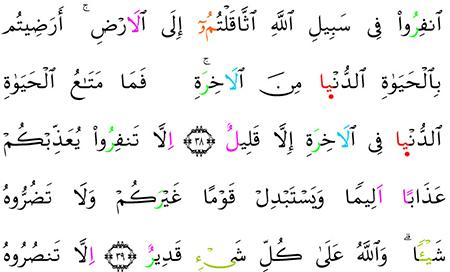 اَ۪نفِرُواْ فِى سَبِيلِ اِ۬للَّهِ اِ۪ثَّاقَلْتُمُۥٓ إِلَى اَ۬لَارْضِ ۚ أَرَضِيتُم
بِالْحَيَوٰةِ اِ۬لدُّنْيا مِنَ اَ۬لَاخِرَةِ ۚ فَمَا مَتَٰعُ اُ۬لْحَيَوٰةِ
اِ۬لدُّنْيا فِى اِ۬لَاخِرَةِ إِلَّا قَلِيلٌ ٣٨ اِلَّا تَنفِرُواْ يُعَذِّبْكُمْ
عَذَابًا اَلِيمًا وَيَسْتَبْدِلْ قَوْمًا غَيْرَكُمْ وَلَا تَضُرُّوهُ
شَيْـًٔا ۗ وَاللَّهُ عَلَىٰ كُلِّ شَىْءٍ قَدِيرٌ ٣٩ اِلَّا تَنصُرُوهُ